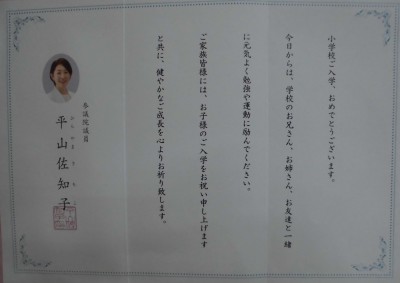 小学校ご入学、おめでとうございます。
今日からは、学校のお兄さん、お姉さん、お友達と一緒
に元気よく勉強や運動に励んでください。
ご家族皆様には、お子様のご入学をお祝い申し上げます
と共に、健やかなご成長を心よりお祈り致します。
参議院議員
平山佐知子
ひらやまさちこ